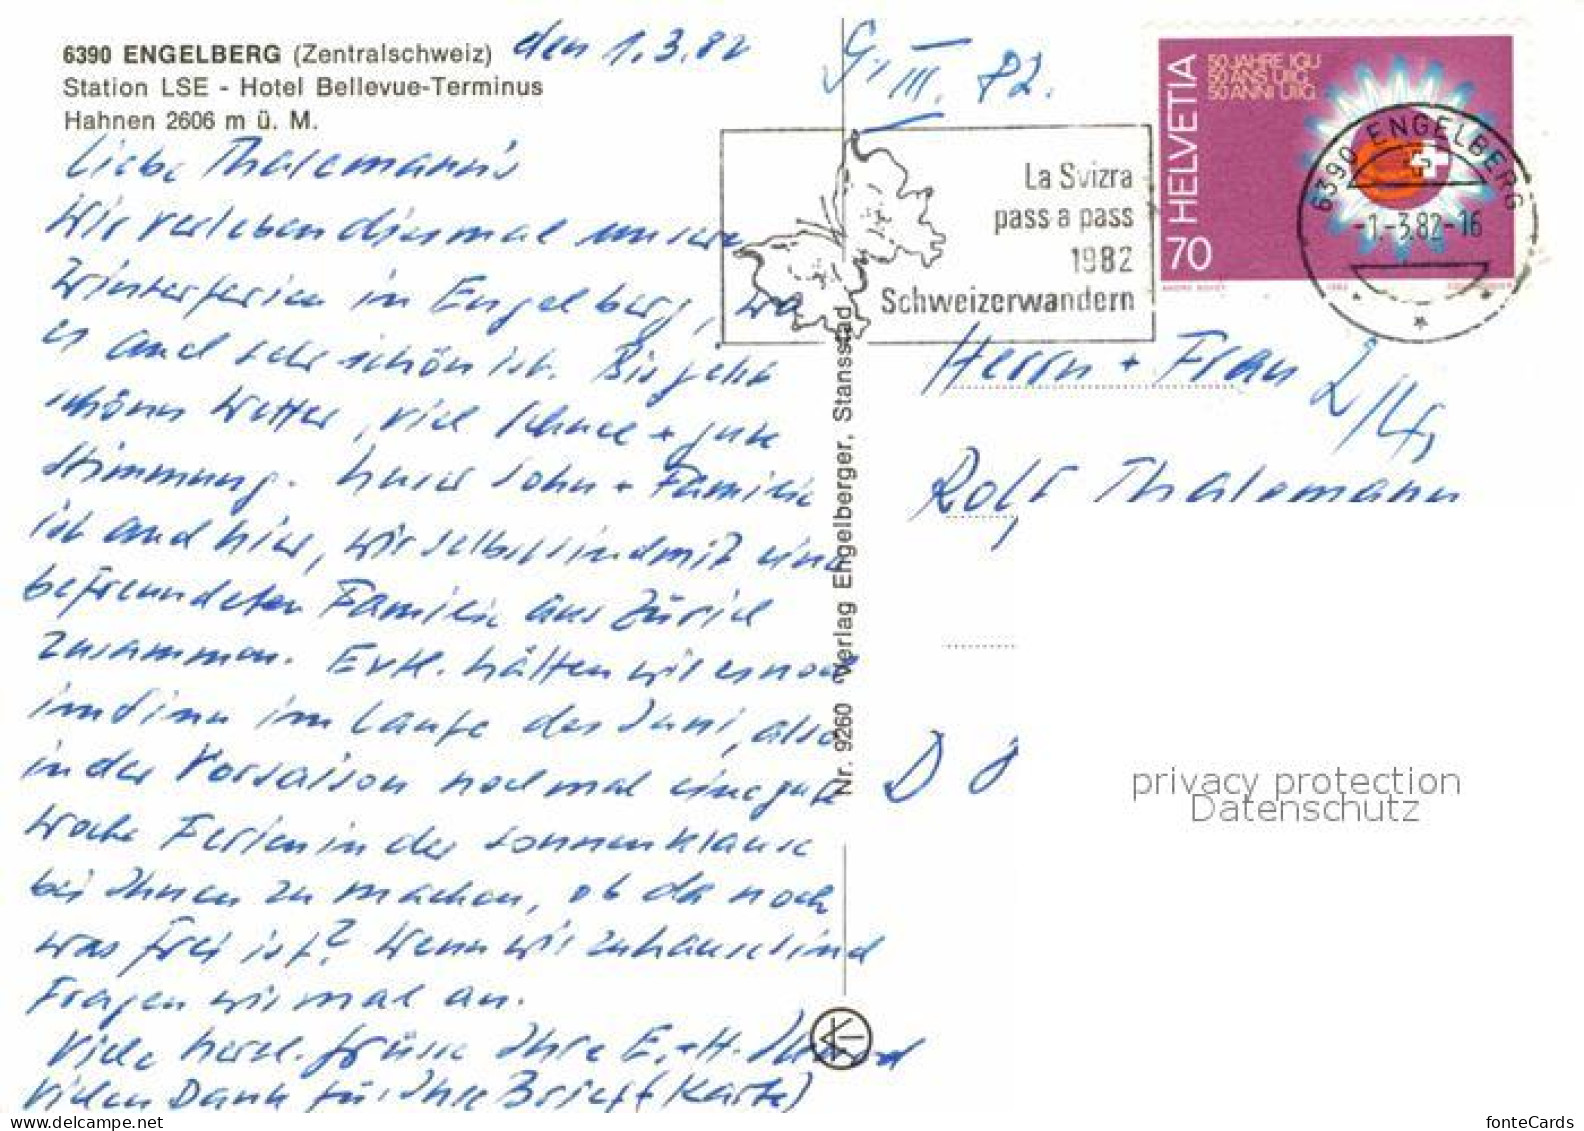 6390 ENGELBERG (Zentralschweiz)
Station LSE - Hotel Bellevue-Terminus
Hahnen 2606 m ü. M.
den 1.3.82
9. III. 82.
Liebe Thalemann's
Wir verleben diesmal unsere
Winterferien in Engelberg, wo
es auch sehr schön ist. Bis jetzt
schönes Wetter, viel Schnee + gute
Stimmung. Unser Sohn + Familie
ist auch hier, wir selbst sind mit einer
befreundeten Familie aus Zürich
zusammen. Evtl. hätten wir es noch
im Sinn im Laufe des Juni, also
in der Vorsaison nochmal eine gute
Woche Ferien in der Sonnenklause
bei Ihnen zu machen, ob da noch
was frei ist? Wenn wir zuhause sind
Fragen wir mal an.
Viele herzl. Grüsse Ihre E. + H.
Vielen Dank für Ihre Brief (+ Karte)
Nr. 9260 Verlag Engelberger, Stansstad
La Svizra
pass a pass
1982
Schweizerwandern
HELVETIA
70
50 JAHRE IGU
50 ANS UIIG
50 ANNI UIIG
6390 ENGELBERG
-1.-3.82-16
Herrn + Frau
Rolf Thalemann
D
privacy protection
Datenschutz
www.delcampe.net
fonteCards